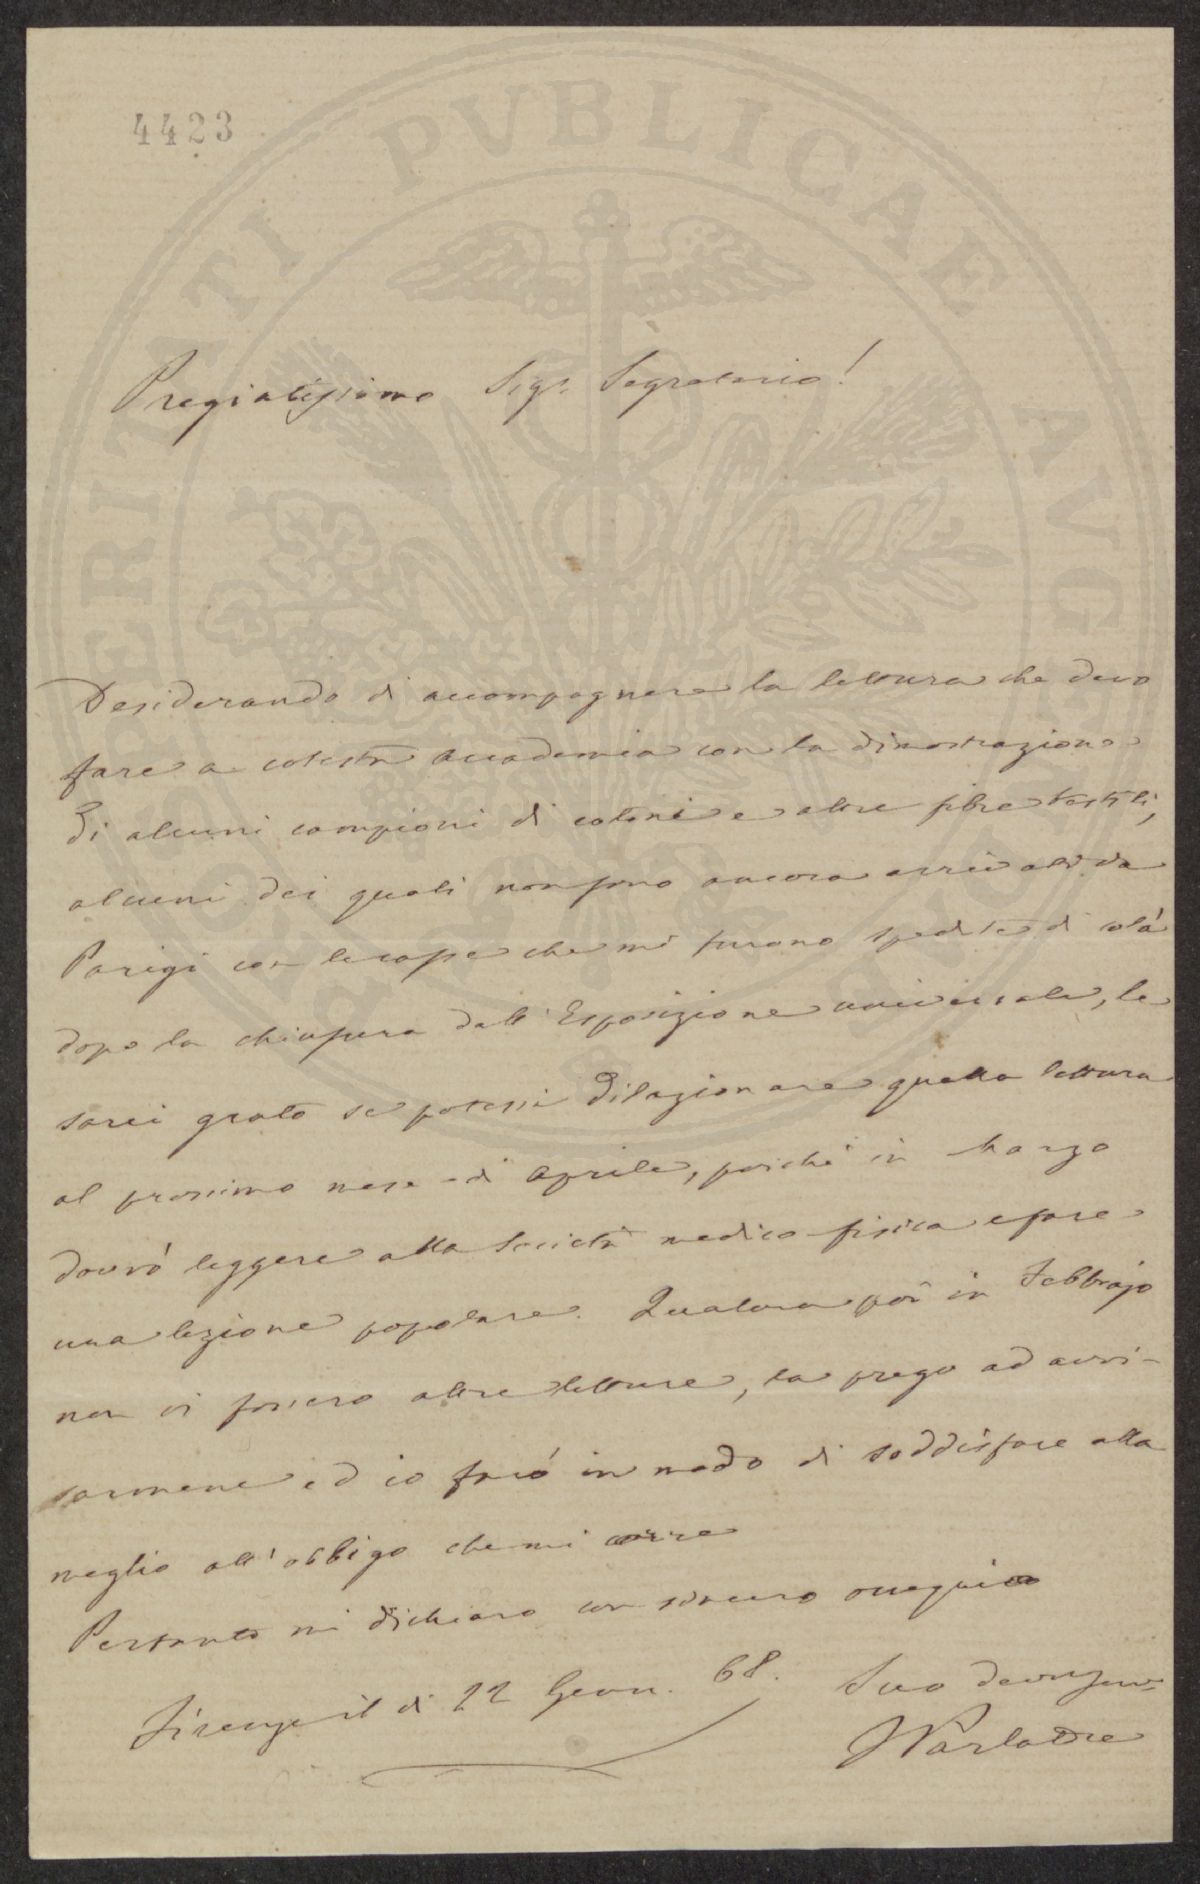 4423
PROSPERITATI PVBLICAE AVGENDAE
Pregiatissimo Sigr. Segretario!
Desiderando di accompagnare la lettura che devo
fare a cotesta Accademia con la dimostrazione
di alcuni campioni di cotoni e altre fibre tessili,
alcuni dei quali non sono ancora arrivati da
Parigi con le casse che mi furono spedite di colà
dopo la chiusura dell'Esposizione universale, le
sarei grato se potessi dilazionare quella lettura
al prossimo mese di Aprile, poiché in Marzo
dovrò leggere alla Società medico-fisica e fare
una lezione popolare. Qualora poi in Febbrajo
non vi fossero altre letture, la prego ad avvi-
sarmene ed io farò in modo di soddisfare alla
meglio all'obbligo che mi corre
Pertanto mi dichiaro con sincero ossequio
Firenze il dì 22 Genn. 68.
Suo devmo serv.
Parlatore